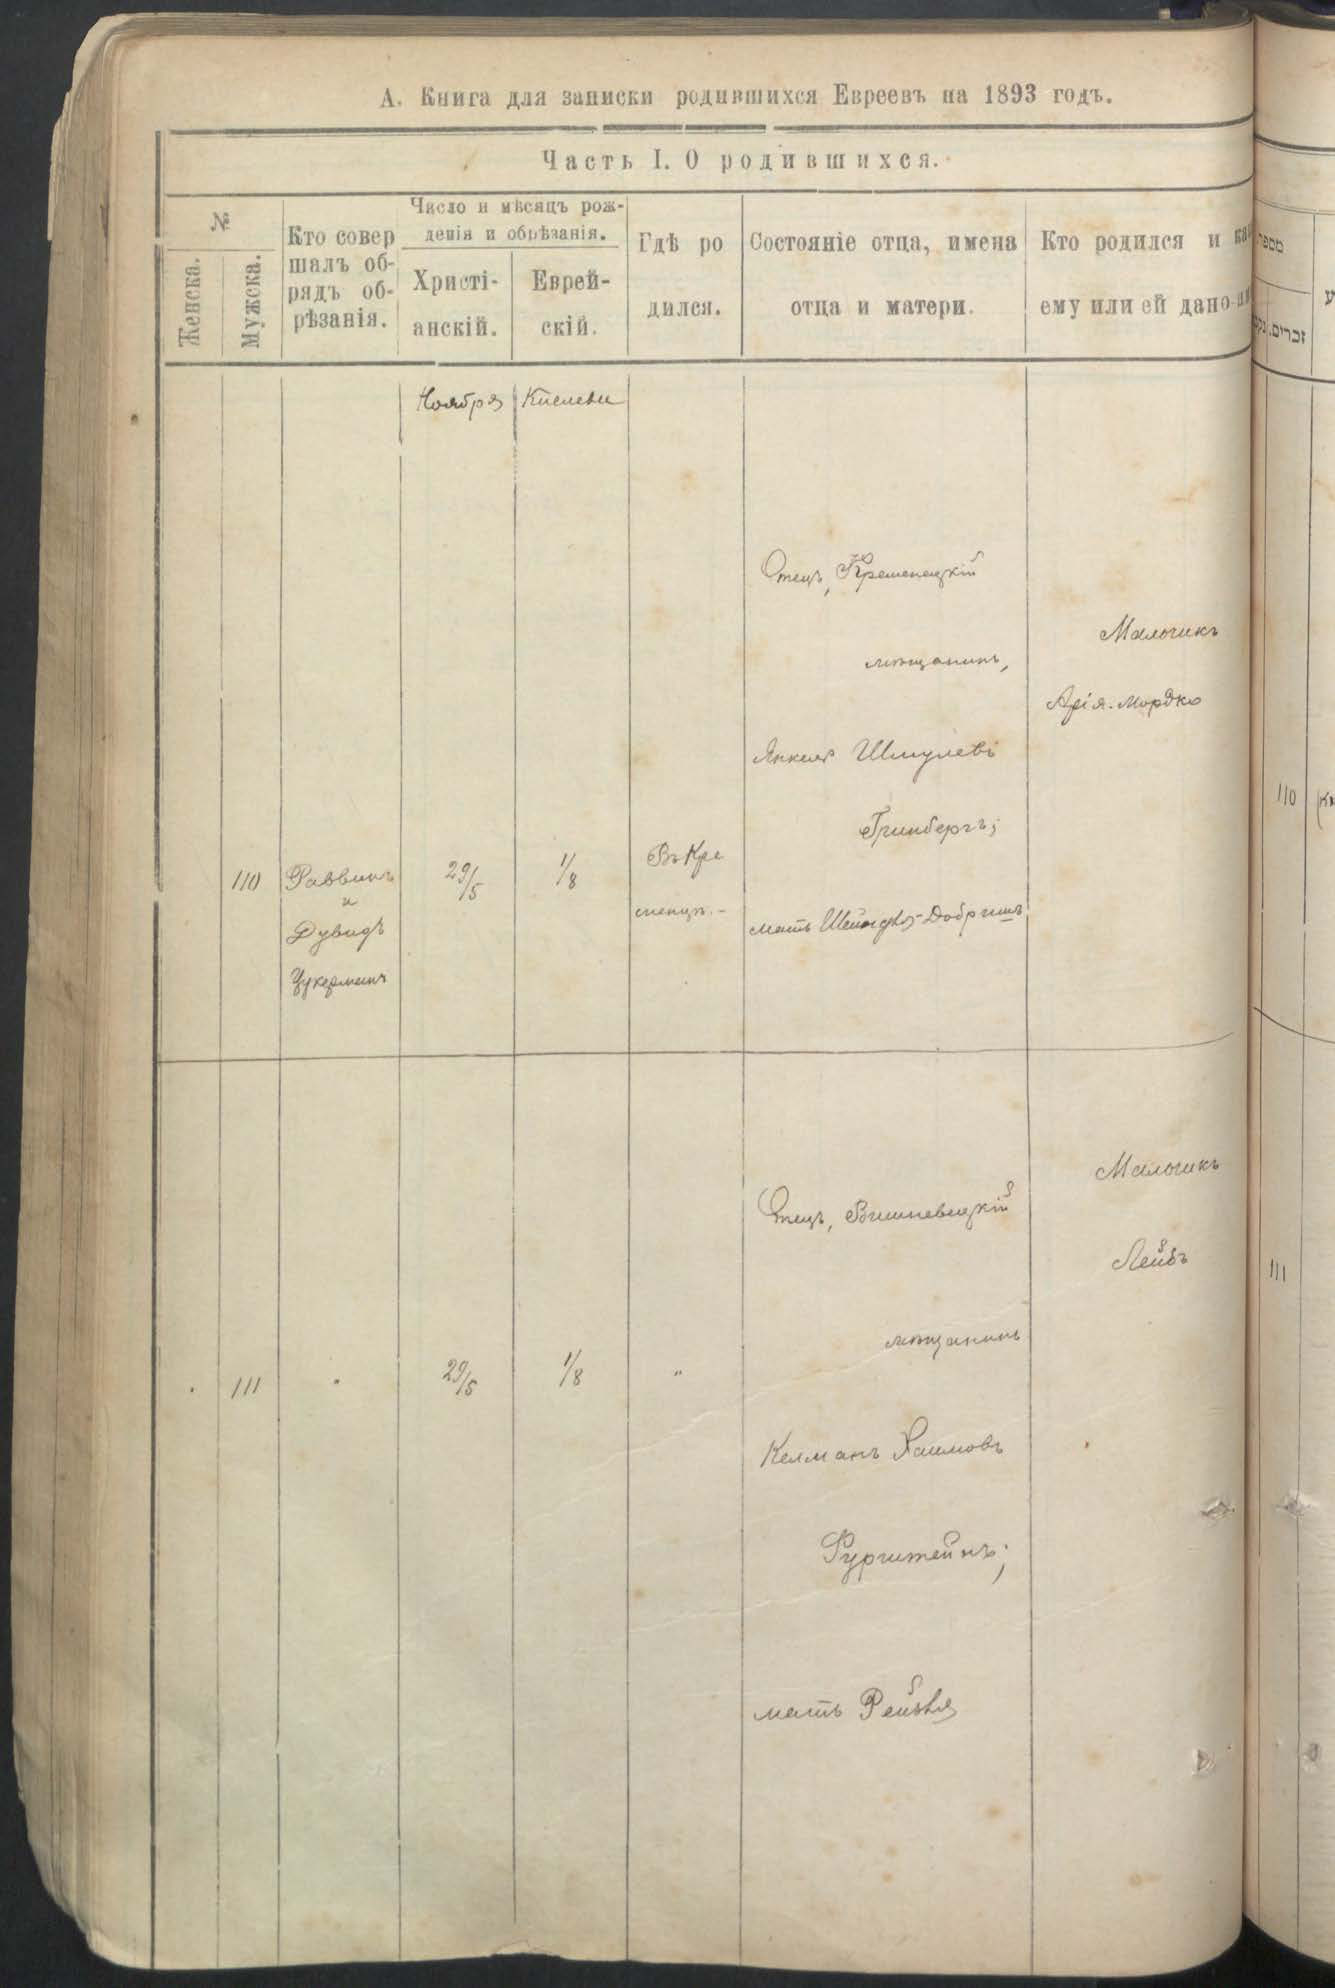 А. Книга для записки родившихся Евреевъ на 1893 годъ.
Часть I. О родившихся.
№
Женска.
Мужска.
Кто совер
шалъ об-
рядъ об-
рѣзанія.
Число и мѣсяцъ рож-
денія и обрѣзанія.
Христі-
анскій.
Еврей-
скій.
Гдѣ ро
дился.
Состояніе отца, имена
отца и матери.
Кто родился и
ему или ей дано
Ноября
Кислевъ
110
Раввинъ
и
Дувидъ
Цукерманъ
29/5
1/8
Въ Кре
менцѣ.-
Отецъ, Кременецкій
мѣщанинъ,
Янкель Шмулевъ
Гринбергъ;
мать Шейндля-Добришъ
Мальчикъ
Арія-Мордко
111
"
29/5
1/8
"
Отецъ, Вишневецкій
мѣщанинъ
Келманъ Хаимовъ
мать Рейзля
Мальчикъ
Лейбъ
מספר
זכרים
110
111